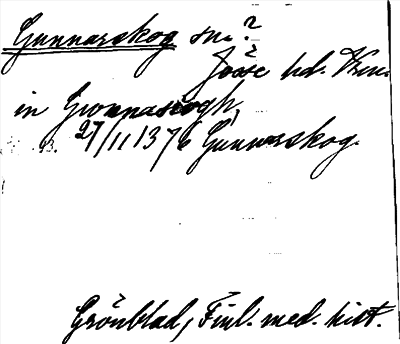 Gunnarskog sn.?
Jösse hd. Vrm.
in Gwnnaskogh,
27/11 1376 Gunnarskog.
Grönblad, Finl. med. hist.